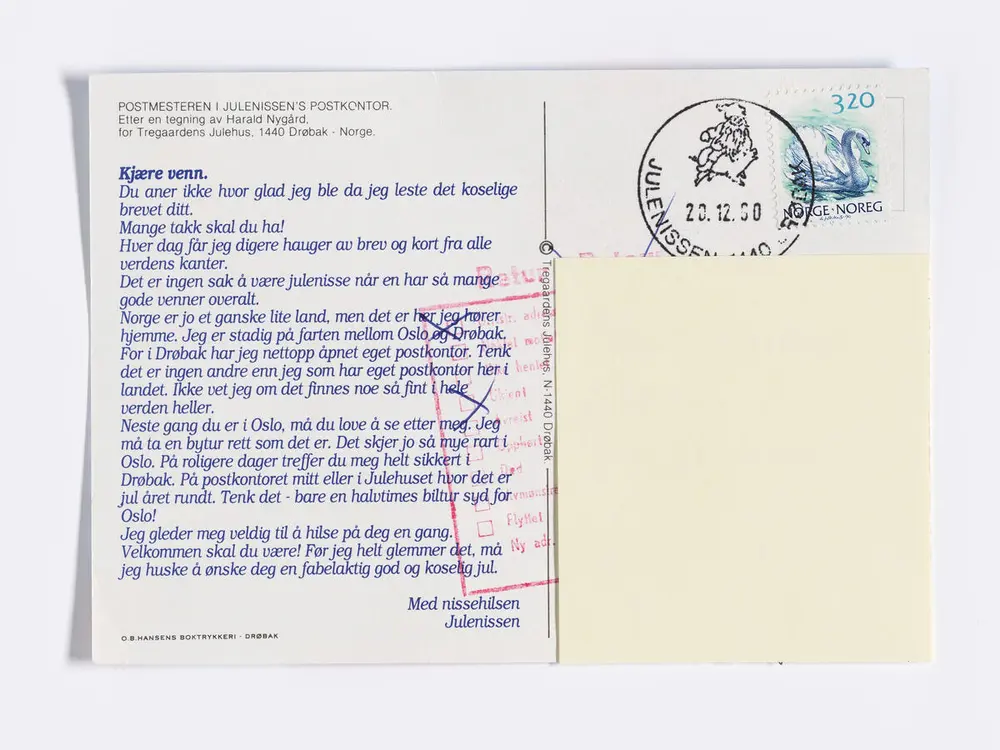 POSTMESTEREN I JULENISSEN'S POSTKONTOR.
Etter en tegning av Harald Nygård,
for Tregaardens Julehus, 1440 Drøbak - Norge.
Kjære venn.
Du aner ikke hvor glad jeg ble da jeg leste det koselige
brevet ditt.
Mange takk skal du ha!
Hver dag får jeg digere hauger av brev og kort fra alle
verdens kanter.
Det er ingen sak å være julenisse når en har så mange
gode venner overalt.
Norge er jo et ganske lite land, men det er her jeg hører
hjemme. Jeg er stadig på farten mellom Oslo og Drøbak.
For i Drøbak har jeg nettopp åpnet eget postkontor. Tenk
det er ingen andre enn jeg som har eget postkontor her i
landet. Ikke vet jeg om det finnes noe så fint i hele
verden heller.
Neste gang du er i Oslo, må du love å se etter meg. Jeg
må ta en bytur rett som det er. Det skjer jo så mye rart i
Oslo. På roligere dager treffer du meg helt sikkert i
Drøbak. På postkontoret mitt eller i Julehuset hvor det er
jul året rundt. Tenk det - bare en halvtimes biltur syd for
Oslo!
Jeg gleder meg veldig til å hilse på deg en gang.
Velkommen skal du være! Før jeg helt glemmer det, må
jeg huske å ønske deg en fabelaktig god og koselig jul.
Med nissehilsen
Julenissen
O.B.HANSENS BOKTRYKKERI - DRØBAK
© Tregaardens Julehus, N-1440 Drøbak.
Retur
Ukjent
Død
Flyttet
Ny adr.
JULENISSEN 1440 DRØBAK
20.12.90
320
NORGE·NOREG